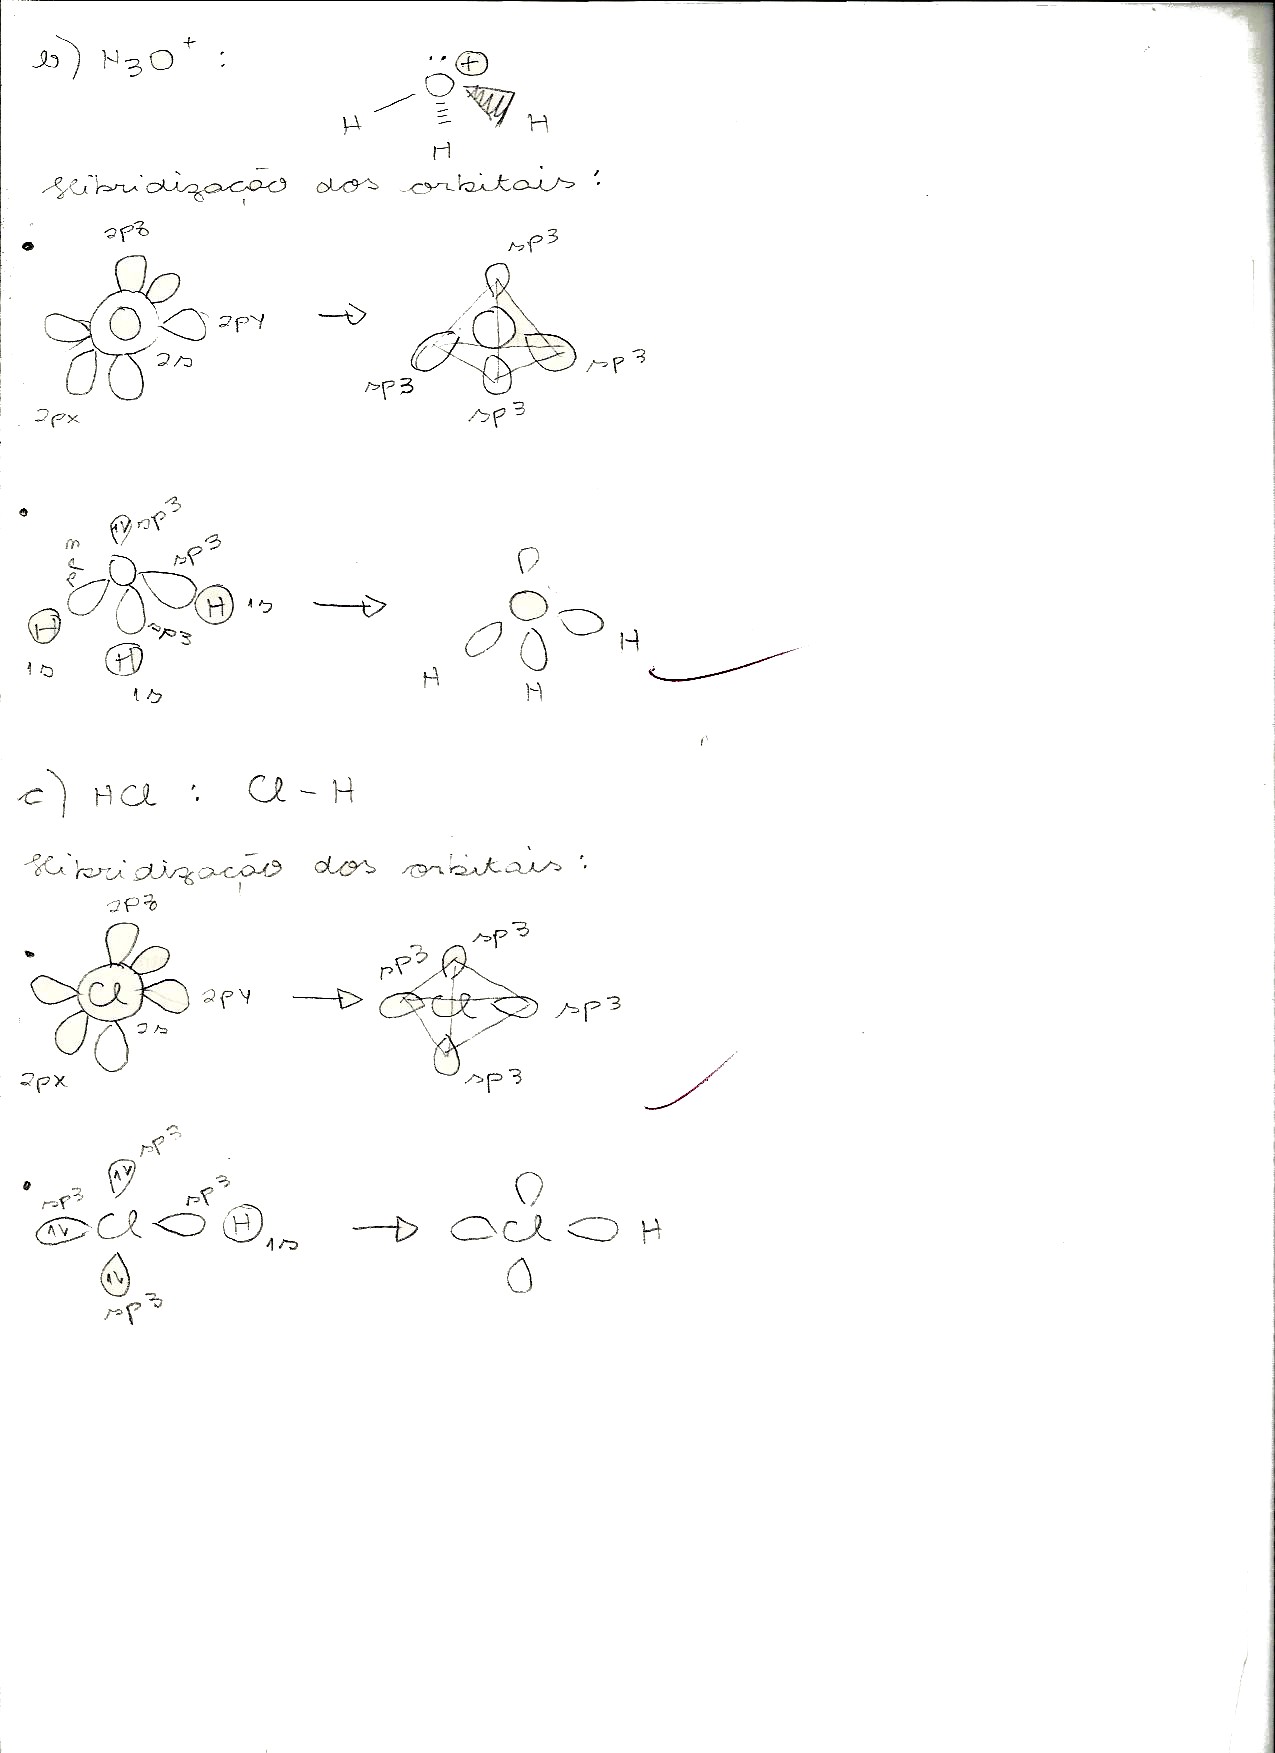 b) H3O+ :
¨ +
H O H
H
Hibridização dos orbitais :
2pz
O 2py
2s
2px
→
sp3
O
sp3 sp3
sp3
↑↓ sp3
sp3 O sp3
H H 1s
1s sp3
H
1s
→
O
H H
H
c) HCl : Cl - H
Hibridização dos orbitais :
2pz
Cl 2py
2s
2px
→
sp3 sp3
Cl sp3
sp3
↑↓ sp3
sp3 sp3
↑↓ Cl H 1s
↑↓
sp3
→
Cl H